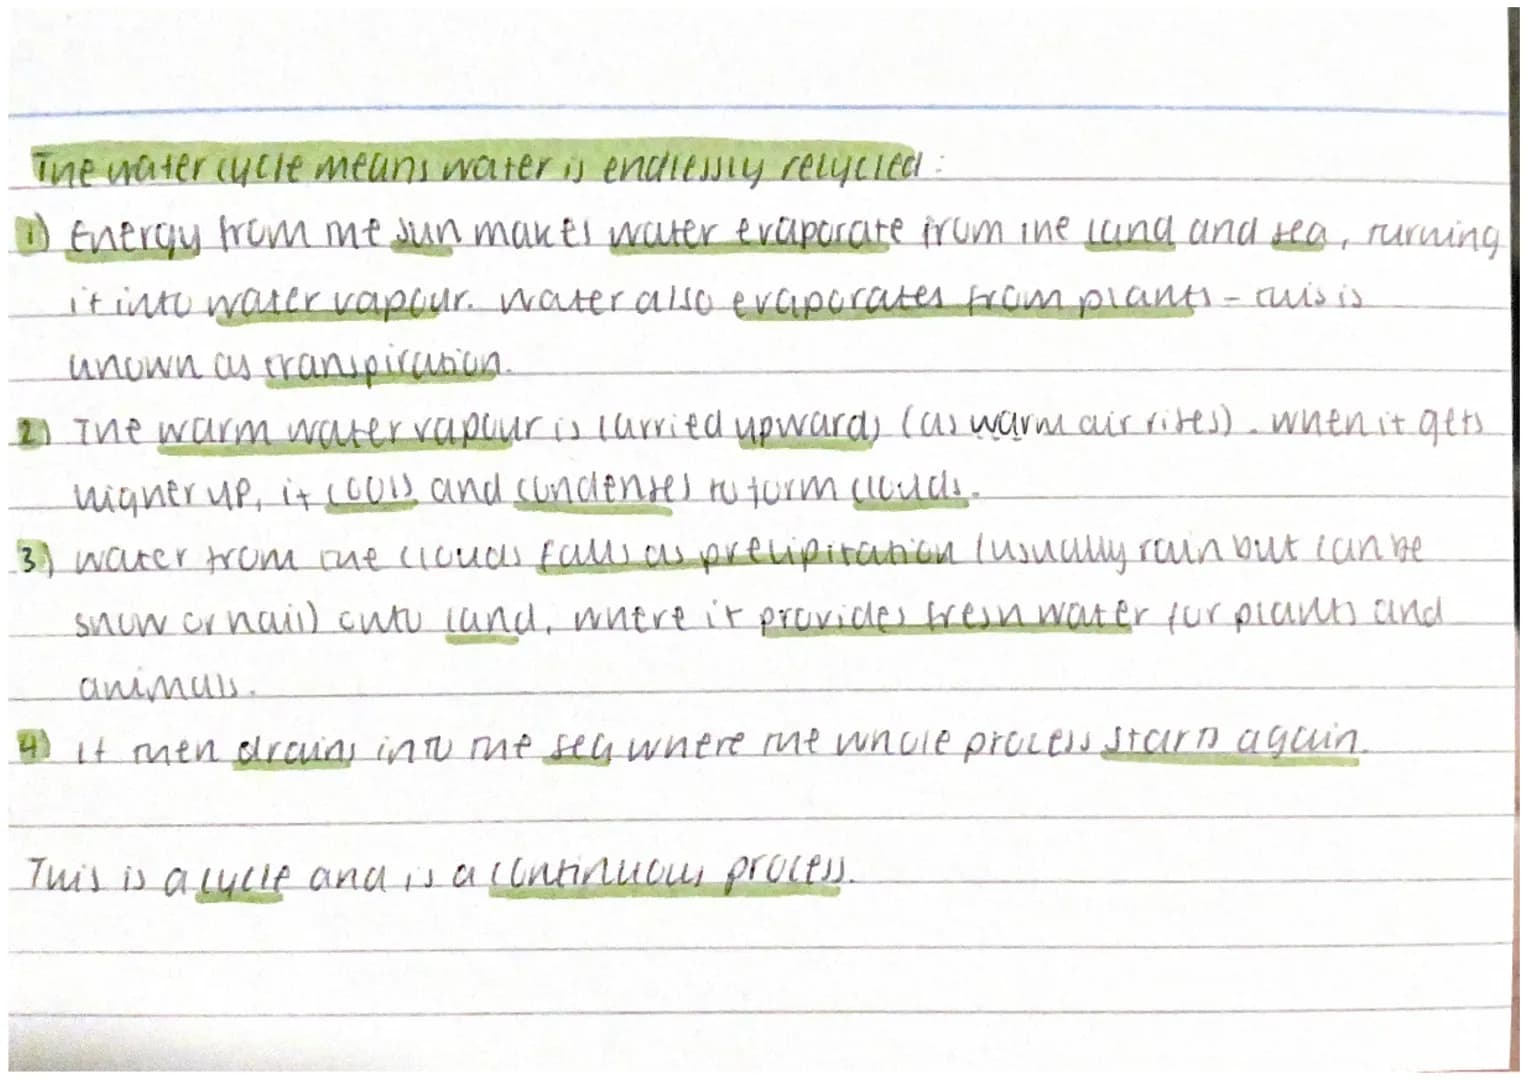 The water cycle means water is endlessly recycled:
1) Energy from the sun makes water evaporate from the land and sea, turning
it into water vapour. Water also evaporates from plants - this is
known as transpiration.
2) The warm water vapour is carried upwards (as warm air rises). When it gets
higher up, it cools and condenses to form clouds.
3) Water from the clouds falls as precipitation (usually rain but can be
snow or hail) onto land, where it provides fresh water for plants and
animals.
4) It then drains into the sea where the whole process starts again.
This is a cycle and is a continuous process.